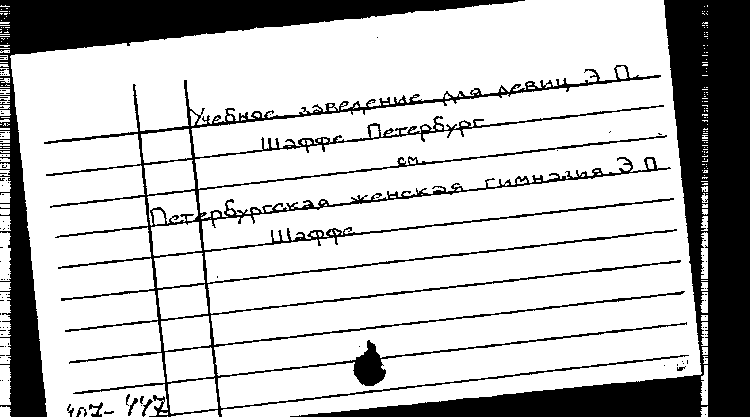 Учебное заведение для девиц Э. П.
Шаффе Петербург
см.
Петербургская женская гимназия Э. П
Шаффе
407-447